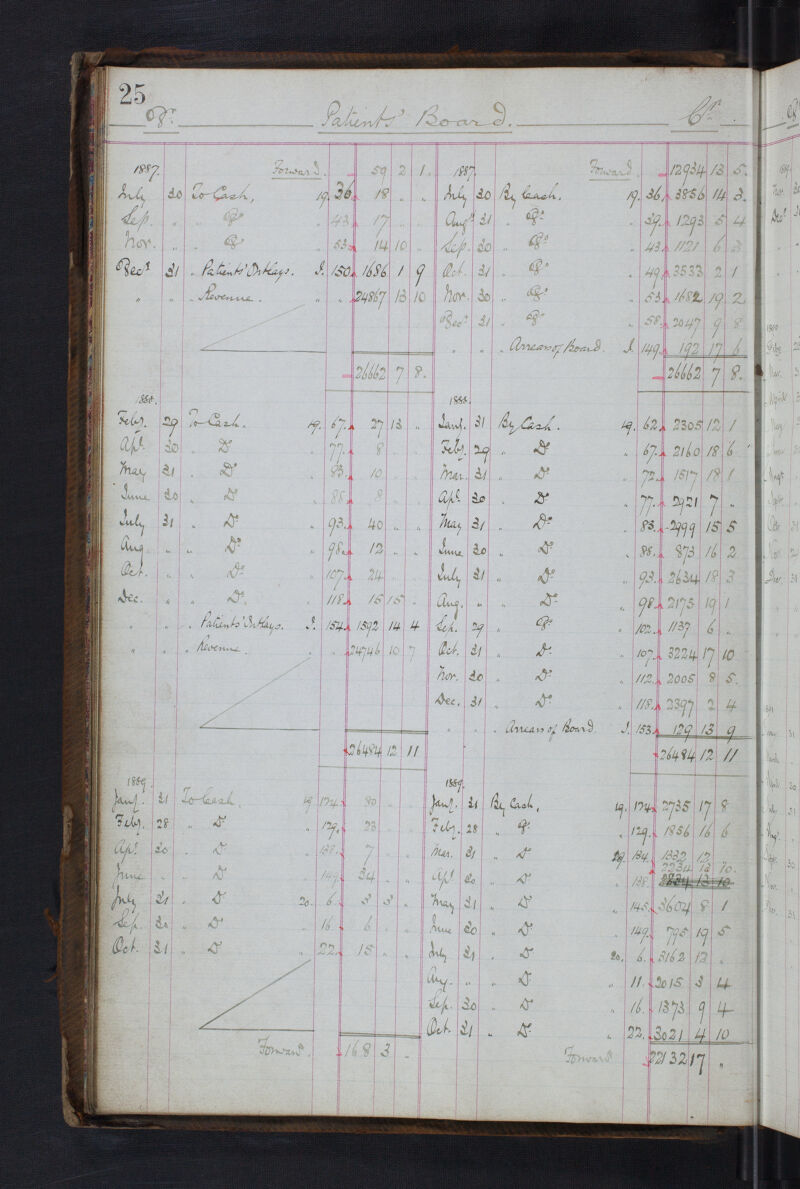 25
Dr. Patients' Board. Cr.
1887. Forward. 59 2 1. 1887. Forward. 12934 13 5.
July 30 To Cash, 19. 36. 18 " " July 30 By Cash. 19. 36. 3856 14 3.
Sep. " " Do " 43. 17 " " Augt. 31 " Do " 39. 1293 5 4
Nov. " " Do " 53. 14 10 " Sep. 30 " Do " 43. 1121 6 3
Decr. 31 " Patients' Outlays. J. 150. 1686 1 9 Oct. 31 " Do " 49. 3533 2 1
" " " Revenue. " " 24867 13 10 Nov. 30 " Do " 53. 1682 19 2
Decr. 31 " Do " 58. 2047 9 8
" " " Arrears of Board. J. 149. 192 17 6
26662 7 8. 26662 7 8.
1888. 1888.
Feby. 29 To Cash. 19. 67. 27 13 " Jany. 31 By Cash. 19. 62. 2305 12 1
Apl. 30 " Do " 77. 8 " " Feby. 29 " Do " 67. 2160 18 6
May 31 " Do " 83. 10 " " Mar. 31 " Do " 72. 1517 18 1
June 30 " Do " 88. 8 " " Apl. 30 " Do " 77. 2921 7 "
July 31 " Do " 93. 40 " " May 31 " Do " 83. 2999 15 5
Aug. " " Do " 98. 12 " " June 30 " Do " 88. 873 16 2
Oct. " " Do " 107. 24 " " July 31 " Do " 93. 2634 18 3
Dec. " " Do " 118. 15 15 " Aug. " " Do " 98. 2175 19 1
" " " Patients' Outlays. J. 154. 1592 14 4 Sep. 29 " Do " 102. 1137 6 "
" " " Revenue. " " 24746 10 7 Oct. 31 " Do " 107. 3224 17 10
Nov. 30 " Do " 112. 2005 8 5.
Dec. 31 " Do " 118. 2397 2 4
" " " Arrears of Board. J. 153. 129 13 9
26484 12 11 26484 12 11
1889. 1889.
Jany. 31 To Cash. 19 124. 80 " " Jany. 31 By Cash, 19. 124. 2735 17 8
Feby. 28 " Do " 129. 23 " " Feby. 28 " Do " 129. 1856 16 6
Apl. 30 " Do " 138. 7 " " Mar. 31 " Do 19. 134. 1332 12 "
2234 13 10.
June " " Do " 149. 34 " " Apl. 30 " Do " 138. 2834 13 10
July 31 " Do 20. 6. 3 3 " May 31 " Do " 145. 3604 8 1
Sep. 30 " Do " 16. 6 " " June 30 " Do " 149. 795 19 5
Oct. 31 " Do " 22. 15 " " July 31 " Do 20. 6. 3162 12 "
Aug. " " Do " 11. 2015 3 4
Sep. 30 " Do " 16. 1373 9 4
Oct. 31 " Do " 22. 3021 4 10
Forward. 168 3 " Forward 22132 17 "